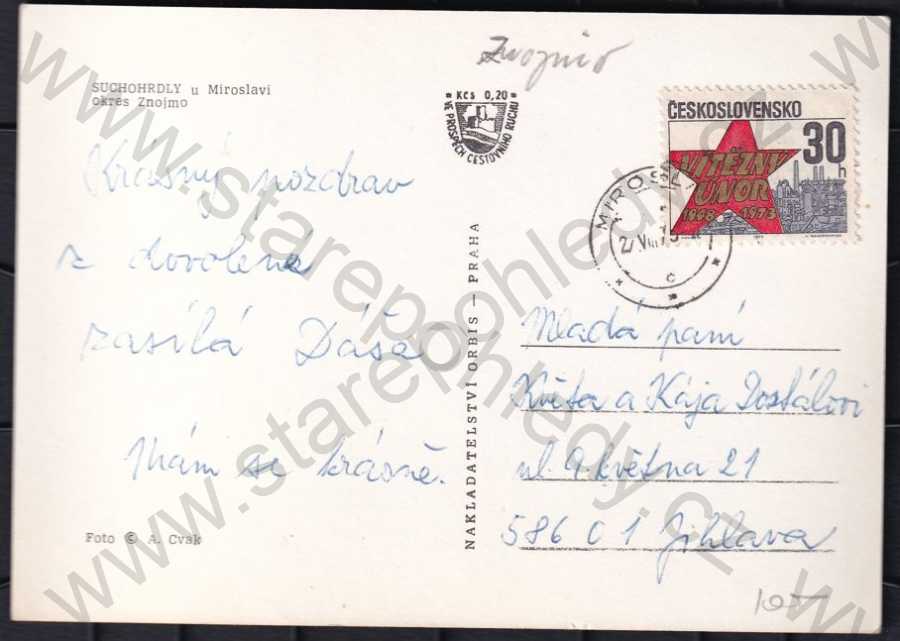 Znojmo
SUCHOHRDLY u Miroslavi
okres Znojmo
* Kčs 0,20 *
VE PROSPĚCH CESTOVNÍHO RUCHU
ČESKOSLOVENSKO
30
h
VÍTĚZNÝ
ÚNOR
1948 1973
MIROSL
Krásný pozdrav
z dovolené
zasílá Dáša
Mám se krásně.
NAKLADATELSTVÍ ORBIS — PRAHA
Mladá paní
Květa a Kája Dostálovi
ul. 9. května 21
586 01 Jihlava
Foto © A. Cvak
www.starepohledy.cz
www.starepohledy.cz
www.starepohledy.cz